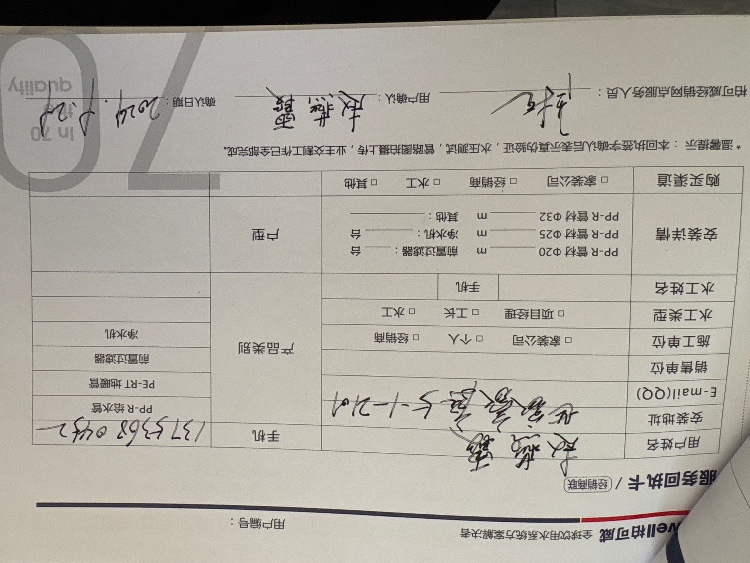 well柏可威 全球饮用水系统方案解决者 用户编号：
服务回执卡 / 经销商联
用户姓名 手机
安装地址 PP-R 给水管
E-mail(QQ) 5-1-2101 PE-RT 地暖管
销售单位 产品类别 前置过滤器
施工单位 □ 家装公司 □ 个人 □ 经销商 净水机
水工类型 □ 项目经理 □ 工长 □ 水工
水工姓名 手机
安装详情 PP-R 管材 Φ20 m 前置过滤器： 台 户型
PP-R 管材 Φ25 m 净水机： 台
PP-R 管材 Φ32 m 其他：
购买渠道 □ 家装公司 □ 经销商 □ 水工 □ 其他
*温馨提示：本回执签字确认后表示真伪验证，水压测试，管路图拍摄上传，业主交割工作已全部完成。
柏可威经销网点服务人员： 用户确认： 确认日期：2024.
70
in 70
quality